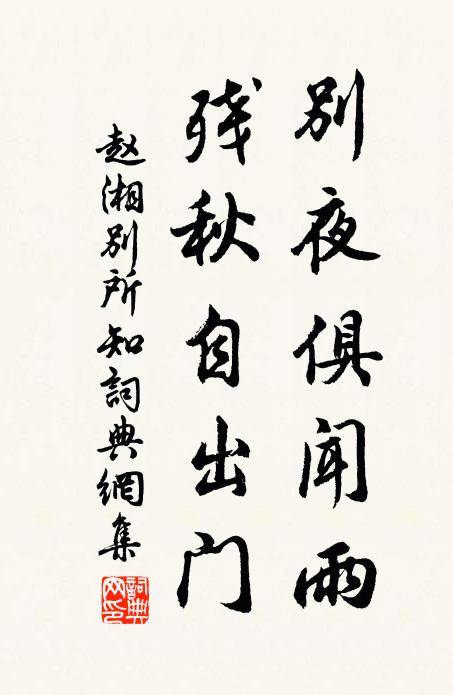 别夜俱闻雨
残秋自出门
赵湘别所知詞典網集
詞典网印